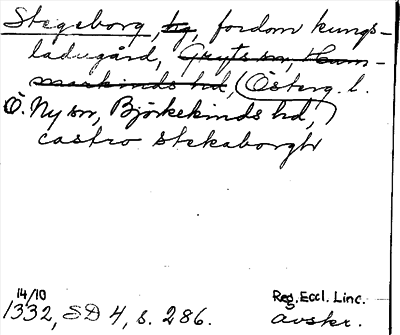 Stegeborg, hg, fordom kungs-
ladugård, Gryts sn, Ham-
markinds hd, Österg. l.
Ö. Ny sn, Björkekinds hd,
castro stekaborghr
14/10
1332, SD 4, s. 286.
Reg. Eccl. Linc.
avskr.